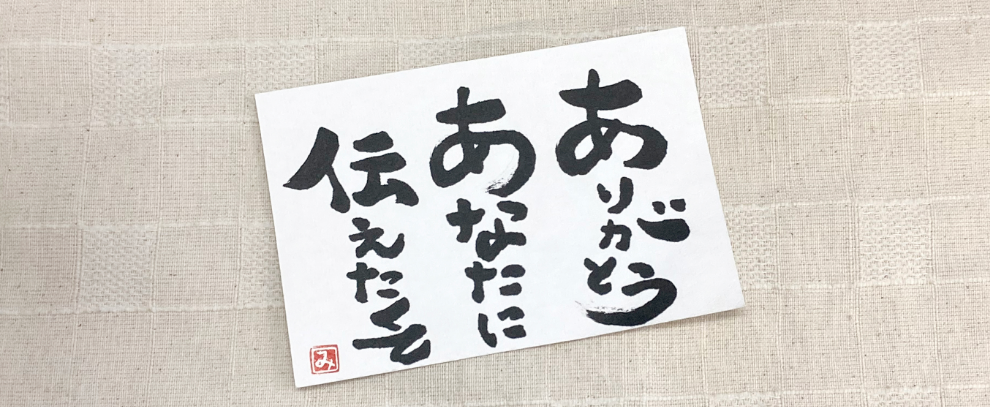 ありがとう
あなたに
伝えたくて
み